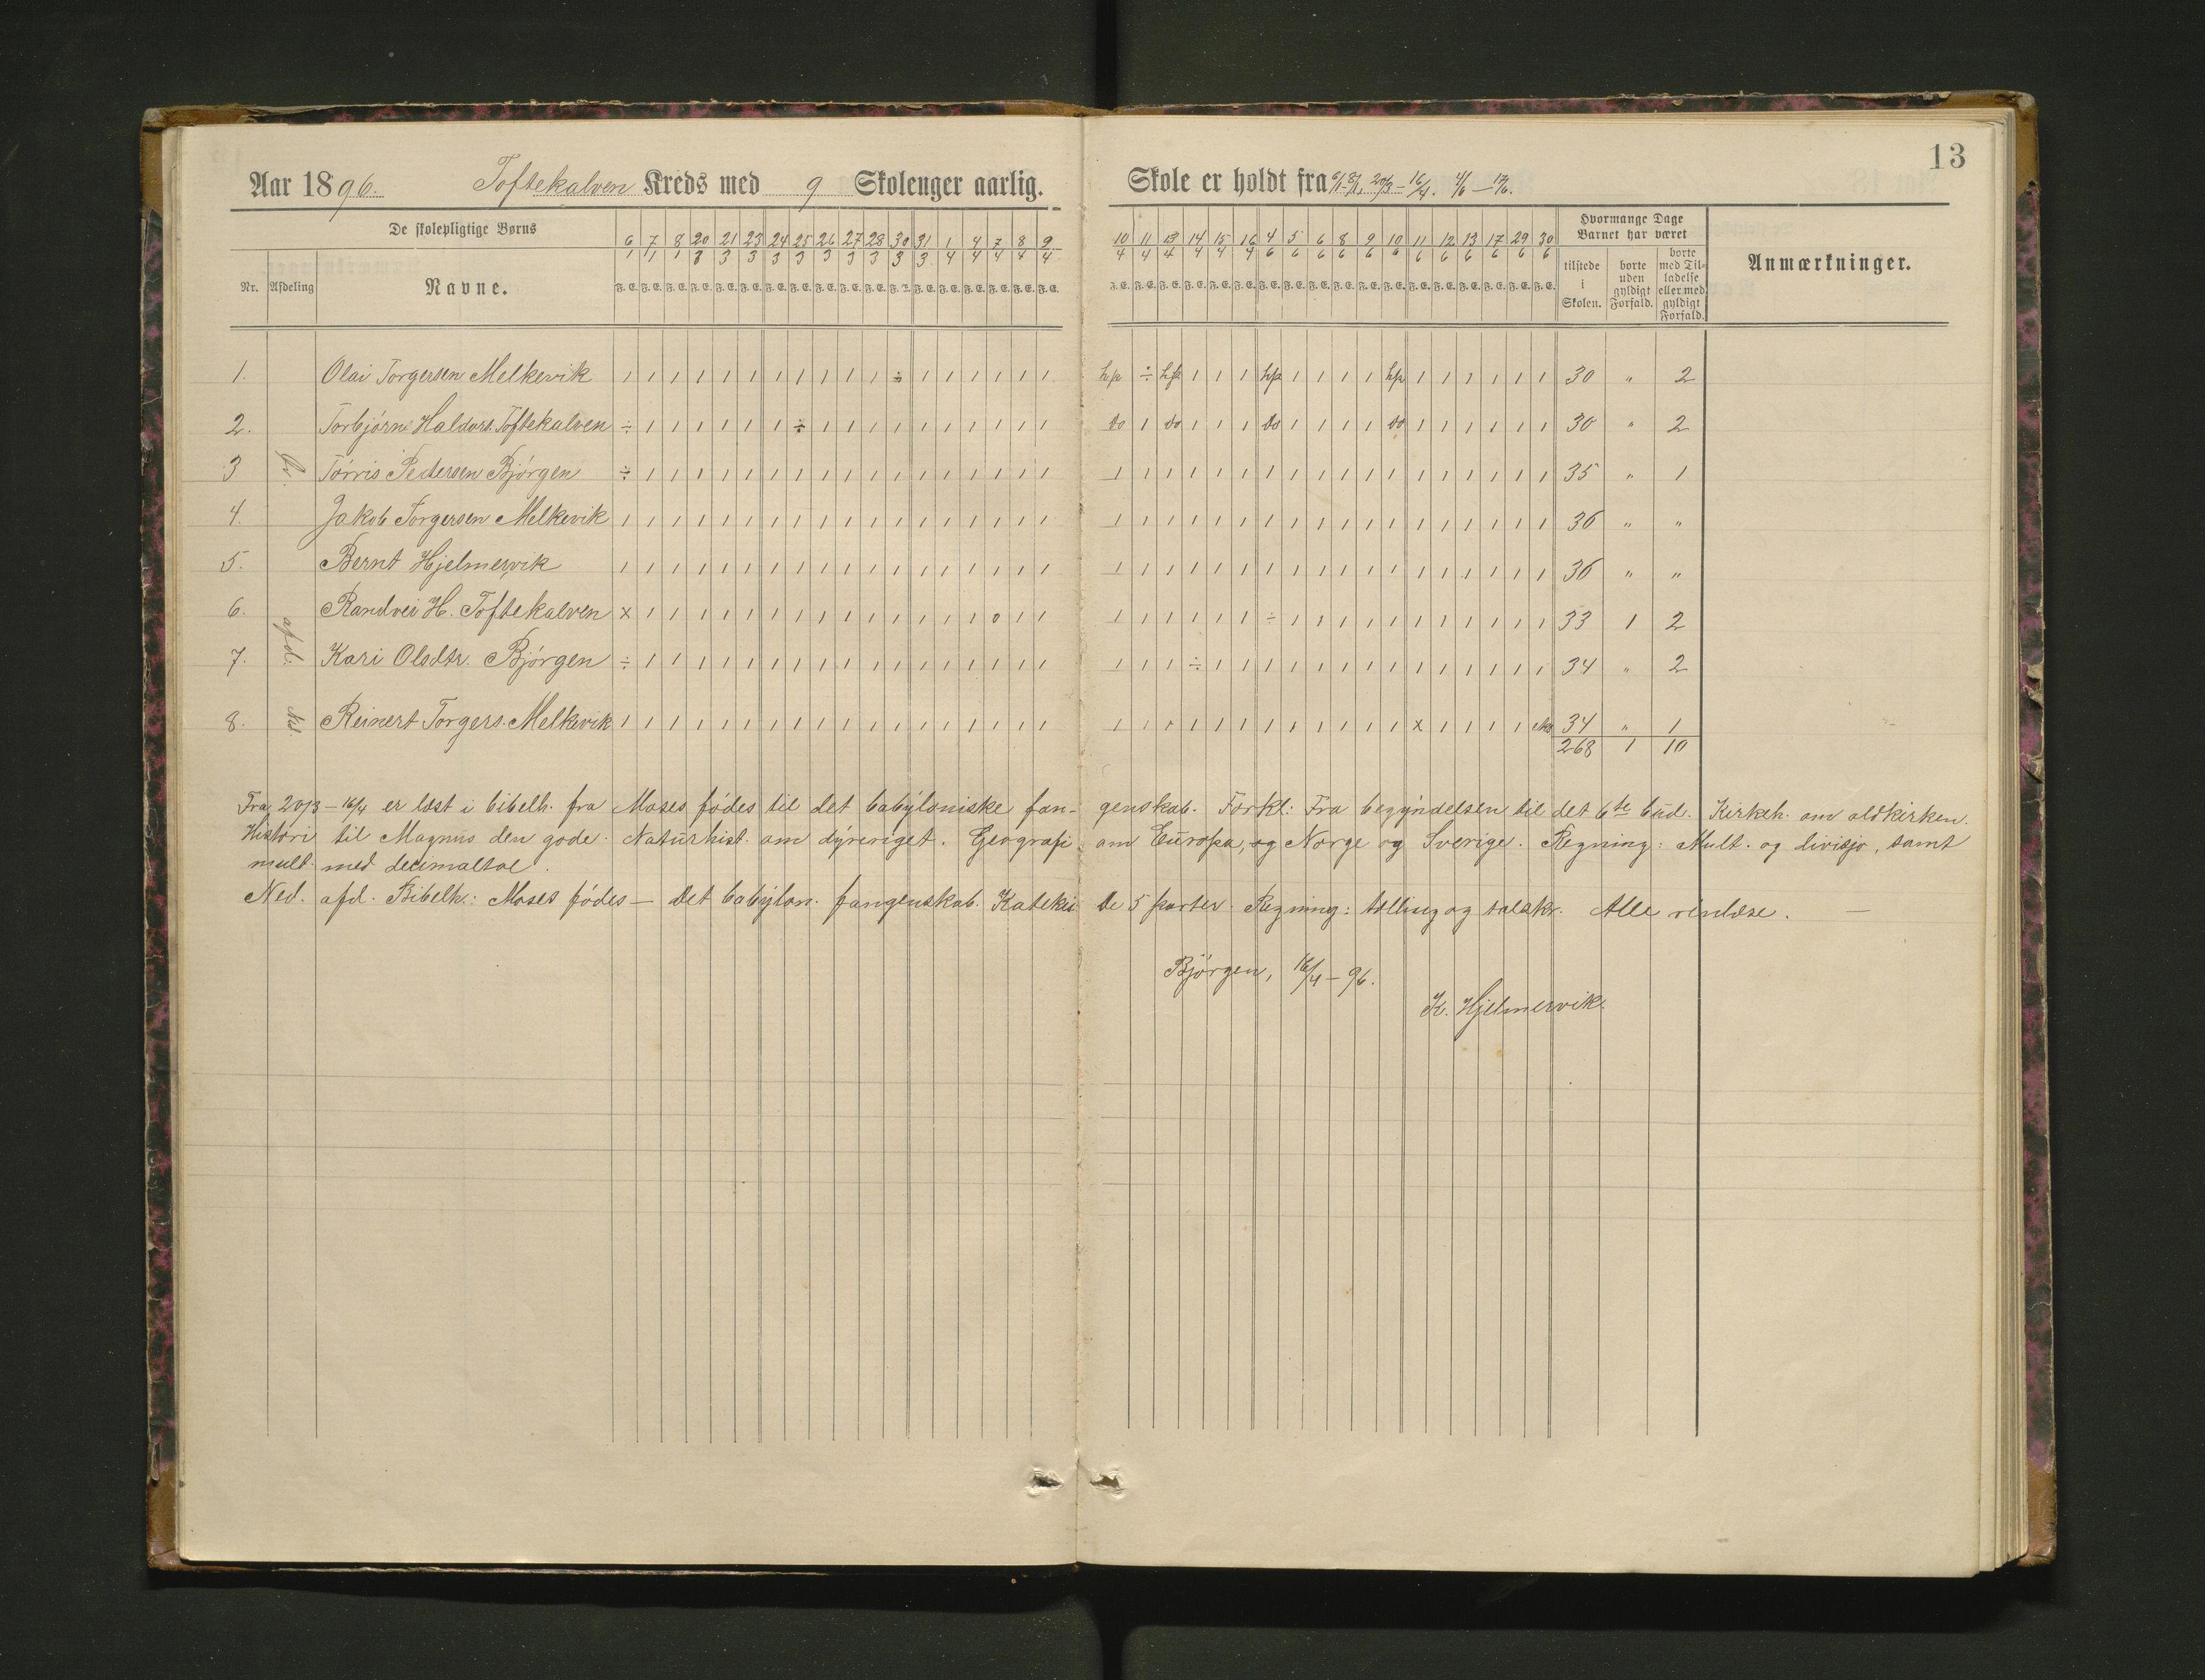 13
Aar 1896. Toftekalven Kreds med 9 Skolenger aarlig. Skole er holdt fra 6/1-8/1, 20/3-16/4. 4/6-17/6.
De skolepligtige Børns
Hvormange Dage Barnet har været
Nr. Afdeling Navne.
6/1 7/1 8/1 20/3 21/3 23/3 24/3 25/3 26/3 27/3 28/3 30/3 31/3 1/4 4/4 7/4 8/4 9/4
10/4 11/4 13/4 14/4 15/4 16/4 4/6 5/6 6/6 8/6 9/6 10/6 11/6 12/6 13/6 17/6 29/6 30/6
F. E. F. E. F. E. F. E. F. E. F. E. F. E. F. E. F. E. F. E. F. E. F. E. F. E. F. E. F. E. F. E. F. E. F. E.
F. E. F. E. F. E. F. E. F. E. F. E. F. E. F. E. F. E. F. E. F. E. F. E. F. E. F. E. F. E. F. E. F. E. F. E.
tilstede i Skolen. borte uden gyldigt Forfald. borte med Tilladelse eller med gyldigt Forfald. Anmærkninger.
1. Olai Torgersen Melkevik 1 1 1 1 1 1 1 1 1 1 1 ÷ 1 1 1 1 1 1 hp ÷ hp 1 1 1 hp 1 1 1 1 hp 1 1 1 1 1 1 30 " 2
2. Torbjørn Haldors. Toftekalven ÷ 1 1 1 1 1 1 ÷ 1 1 1 1 1 1 1 1 1 1 do 1 do 1 1 1 do 1 1 1 1 do 1 1 1 1 1 1 30 " 2
3 Tørris Pedersen Bjørgen ÷ 1 1 1 1 1 1 1 1 1 1 1 1 1 1 1 1 1 1 1 1 1 1 1 1 1 1 1 1 1 1 1 1 1 1 1 35 " 1
4. Jakob Torgersen Melkevik 1 1 1 1 1 1 1 1 1 1 1 1 1 1 1 1 1 1 1 1 1 1 1 1 1 1 1 1 1 1 1 1 1 1 1 1 36 " "
5. Bernt Hjelmervik 1 1 1 1 1 1 1 1 1 1 1 1 1 1 1 1 1 1 1 1 1 1 1 1 1 1 1 1 1 1 1 1 1 1 1 1 36 " "
6. afd. Randvei H. Toftekalven x 1 1 1 1 1 1 1 1 1 1 1 1 1 1 0 1 1 1 1 1 1 1 1 ÷ 1 1 1 1 1 1 1 1 1 1 1 33 1 2
7. Kari Olsdtr. Bjørgen ÷ 1 1 1 1 1 1 1 1 1 1 1 1 1 1 1 1 1 1 1 1 ÷ 1 1 1 1 1 1 1 1 1 1 1 1 1 1 34 " 2
8. Nd. Reinert Torgers. Melkevik 1 1 1 1 1 1 1 1 1 1 1 1 1 1 1 1 1 1 1 1 1 1 1 1 1 1 1 1 1 1 x 1 1 1 1 34 " 1
268 1 10
Fra 20/3-16/4 er læst i bibelh. fra Moses fødes til det babyloniske fangenskab. Forkl: Fra begyndelsen til det 6te bud. Kirkeh. om oldkirken.
Histori til Magnus den gode. Naturhist. om dyreriget. Geografi om Europa, og Norge og Sverige. Regning: Mult. og divisjo, samt
mult. med decimaltal.
Ned. afd. Bibelh.: Moses fødes - det babylon. fangenskab. Katekis. De 5 parter. Regning: tælling og talskr. Alle renlæse. —
Bjørgen, 16/4-96.
K. Hjelmervik.